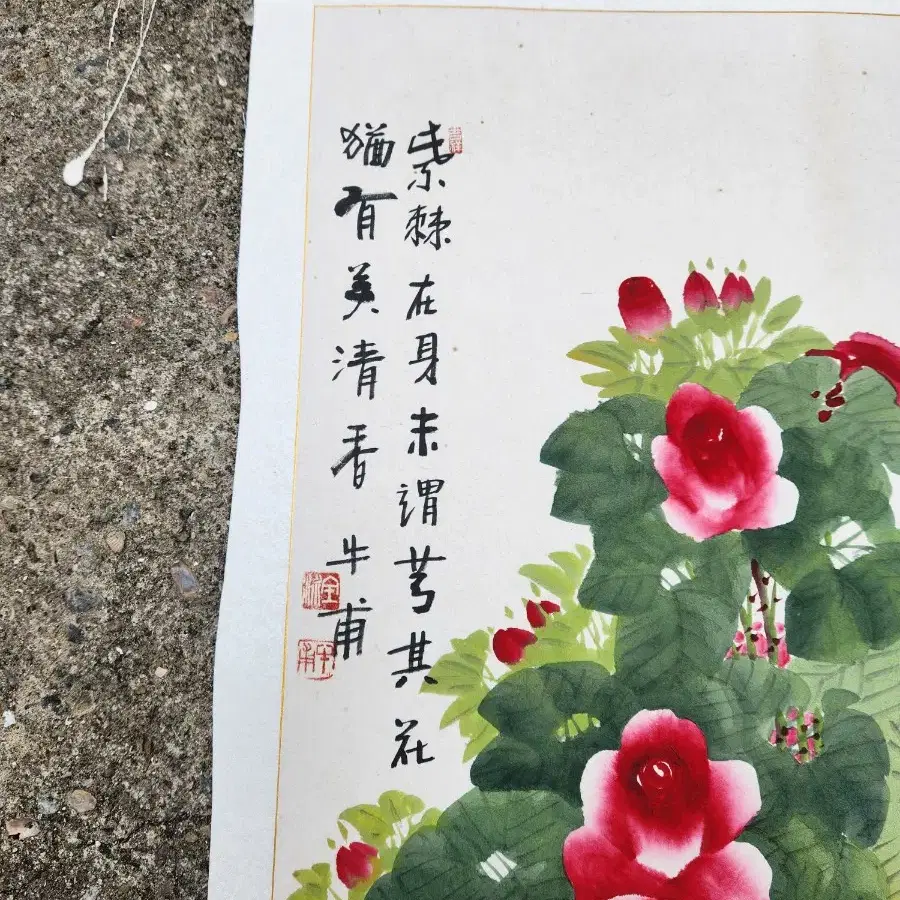 紫棘在身未謂芳其花
猶有美清香 牛甫